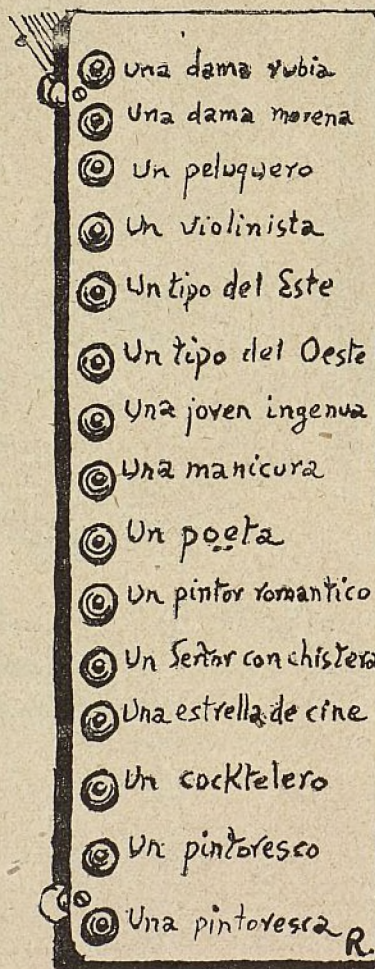 Una dama rubia
Una dama morena
Un peluquero
Un violinista
Un tipo del Este
Un tipo del Oeste
Una joven ingenua
Una manicura
Un poeta
Un pintor romantico
Un Señor con chistera
Una estrella de cine
Un cocktelero
Un pintoresco
Una pintoresca
R.